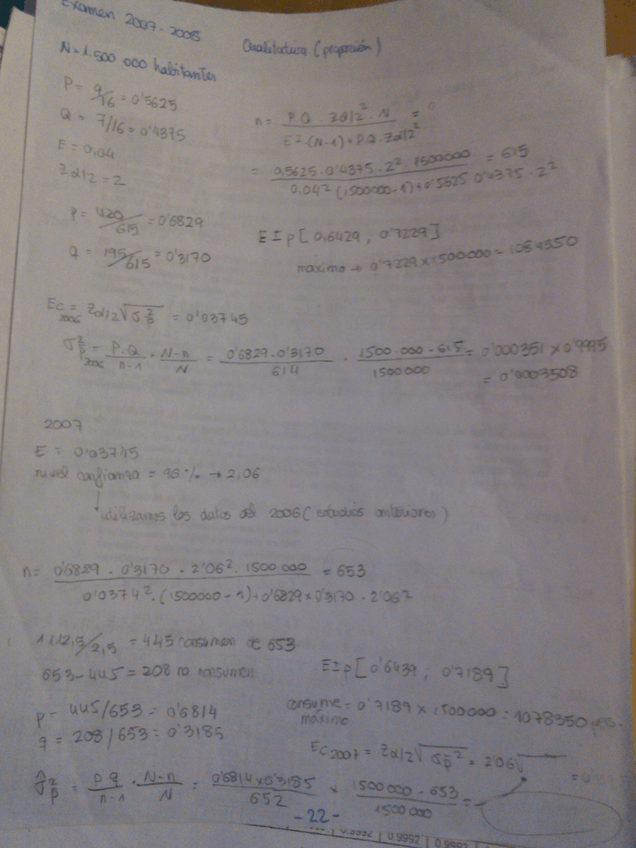 Examen 2007-2008
Cualitativa (proporción)
N=1.500.000 habitantes
P = 9/16 = 0'5625
Q = 7/16 = 0'4375
E = 0,04
Zα/2 = 2
n = P.Q. Zα/2² . N / E².(N-1)+P.Q.Zα/2² =
= 0,5625.0'4375.2².1500000 / 0,04²(1500000-1)+0'5625 0'4375.2² = 615
P = 420/615 = 0'6829
Q = 195/615 = 0'3170
E I p [0,6429 ; 0'7229]
máximo → 0'7229 x 1500000 = 1084350
Ec 2006 = Zα/2 √σ²p = 0'03745
σ²p 2006 = P.Q/n-1 . N-n/N = 0'6829.0'3170/614 . 1500.000-615/1500000 = 0'000351 x 0'9995
= 0'0003508
2007
E = 0'03745
nivel confianza = 96% → 2,06
utilizamos los datos del 2006 (estudios anteriores)
n = 0'6829 . 0'3170 . 2'06² . 1500 000 / 0'0374².(1500000-1)+0'6829x0'3170.2'06² = 653
1112,5/2,5 = 445 consumen de 653
653-445 = 208 no consumen
E I p [0'6439 ; 0'7189]
P = 445/653 = 0'6814
q = 208/653 = 0'3185
consume máximo = 0'7189 x 1500000 = 1078350
Ec2007 = Zα/2 √σp² = 2'06√
σ²p = p.q/n-1 . N-n/N = 0'6814x0'3185/652 x 1500000-653/1500000 =
-22-